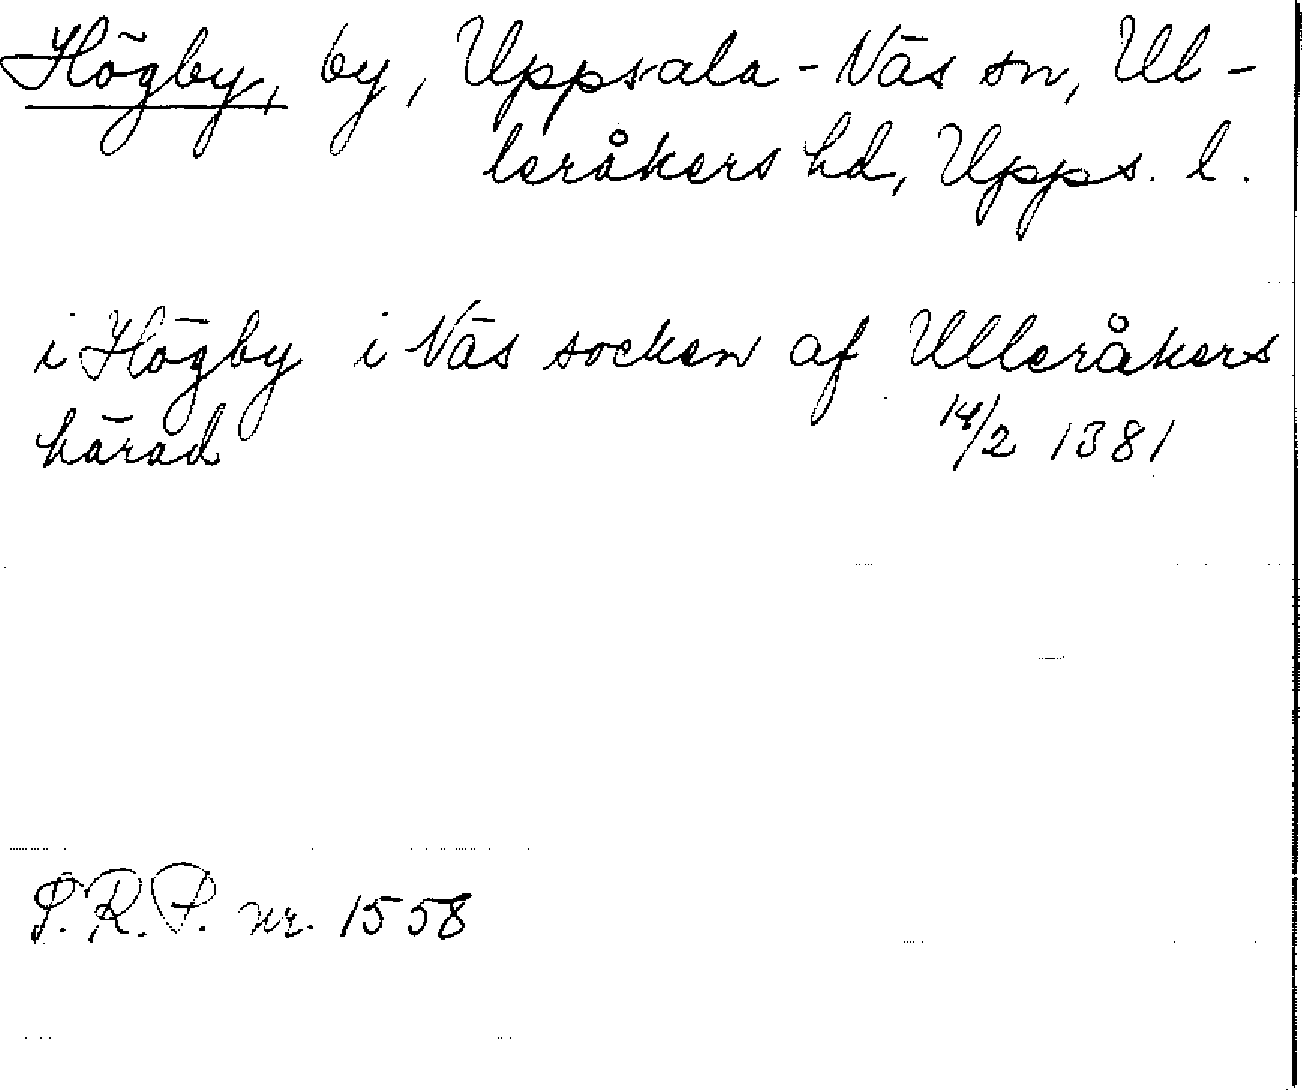 Högby, by, Uppsala-Näs sn, Ul-
leråkers hd, Upps. l.
i Högby i Näs socken af Ulleråkers
härad 14/2 1381
S.R.P. nr. 1558